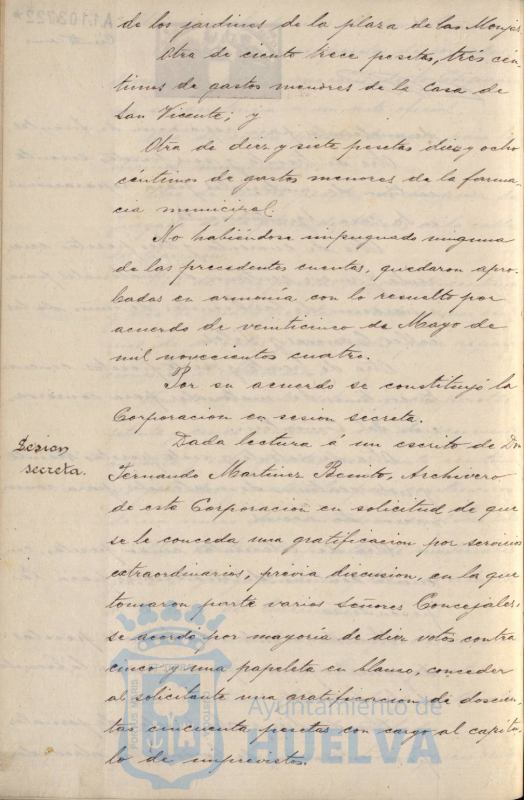 de los jardines de la plaza de las Monjas.
Otra de ciento trece pesetas, tres cén-
timos de gastos menores de la Casa de
San Vicente; y
Otra de diez y siete pesetas diez y ocho
céntimos de gastos menores de la farma-
cia municipal.
No habiéndose impugnado ninguna
de las precedentes cuentas, quedaron apro-
badas en armonía con lo resuelto por
acuerdo de veinticinco de Mayo de
mil novecientos cuatro.
Por su acuerdo se constituyó la
Corporacion en sesion secreta.
Sesion
secreta.
Dada lectura á un escrito de Dn
Fernando Martinez Benito, Archivero
de esta Corporacion en solicitud de que
se le conceda una gratificacion por servicios
extraordinarios, prévia discusion, en la que
tomaron parte varios Señores Concejales,
se acordó por mayoría de diez votos contra
cinco y una papeleta en blanco, conceder
al solicitante una gratificacion de doscien-
tas cincuenta pesetas con cargo al capítu-
lo de imprevistos.
Ayuntamiento de
HUELVA